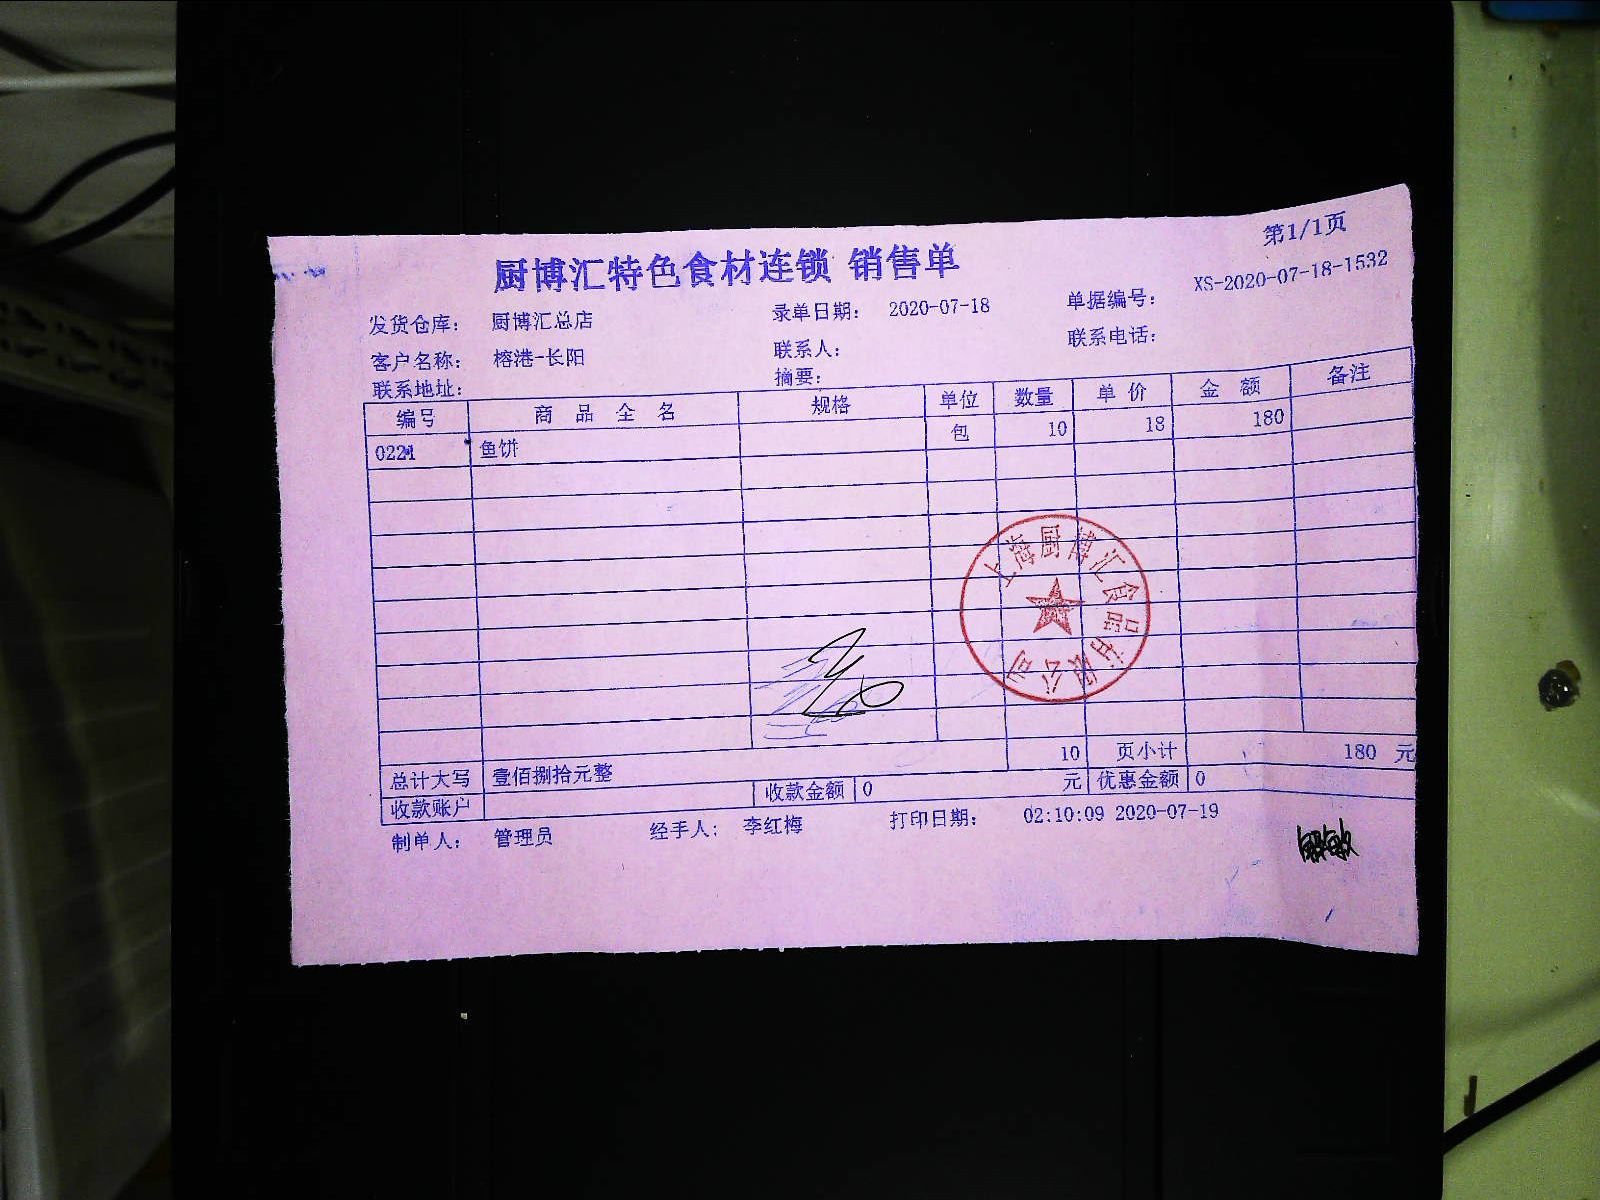 第1/1页
厨博汇特色食材连锁 销售单
发货仓库： 厨博汇总店 录单日期： 2020-07-18 单据编号： XS-2020-07-18-1532
客户名称： 榕港-长阳 联系人： 联系电话：
联系地址： 摘要：
编号 商品全名 规格 单位 数量 单价 金额 备注
0221 鱼饼 包 10 18 180
上海厨博汇食品有限公司
10 页小计 180 元
总计大写 壹佰捌拾元整
收款账户 收款金额 0 元 优惠金额 0
制单人： 管理员 经手人： 李红梅 打印日期： 02:10:09 2020-07-19